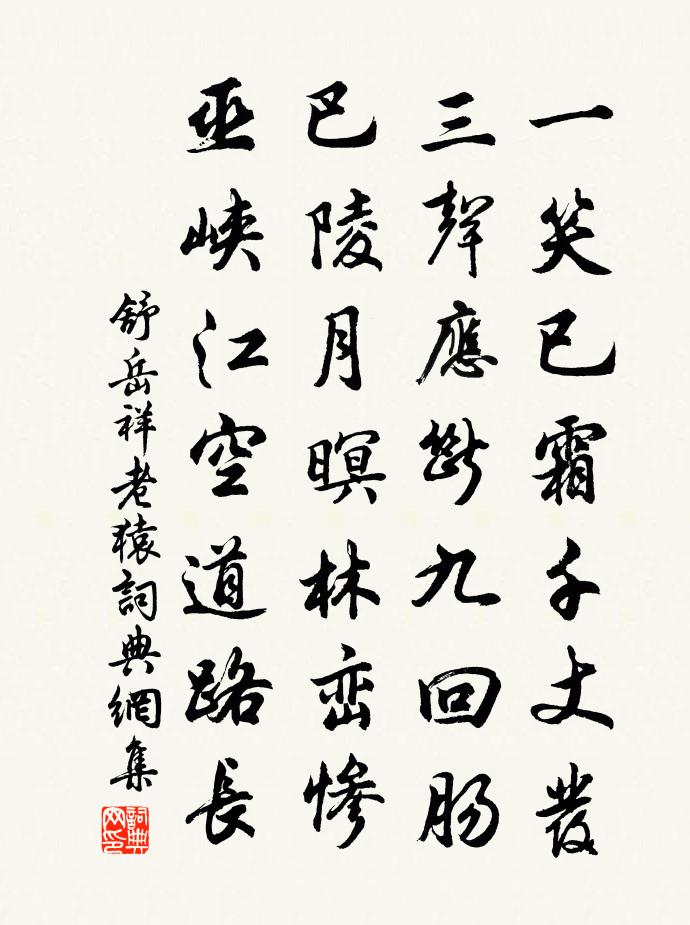 一笑已霜千丈髮
三聲應斷九回腸
巴陵月暝林巒慘
巫峽江空道路長
舒岳祥老猿詞典網集
詞典网印